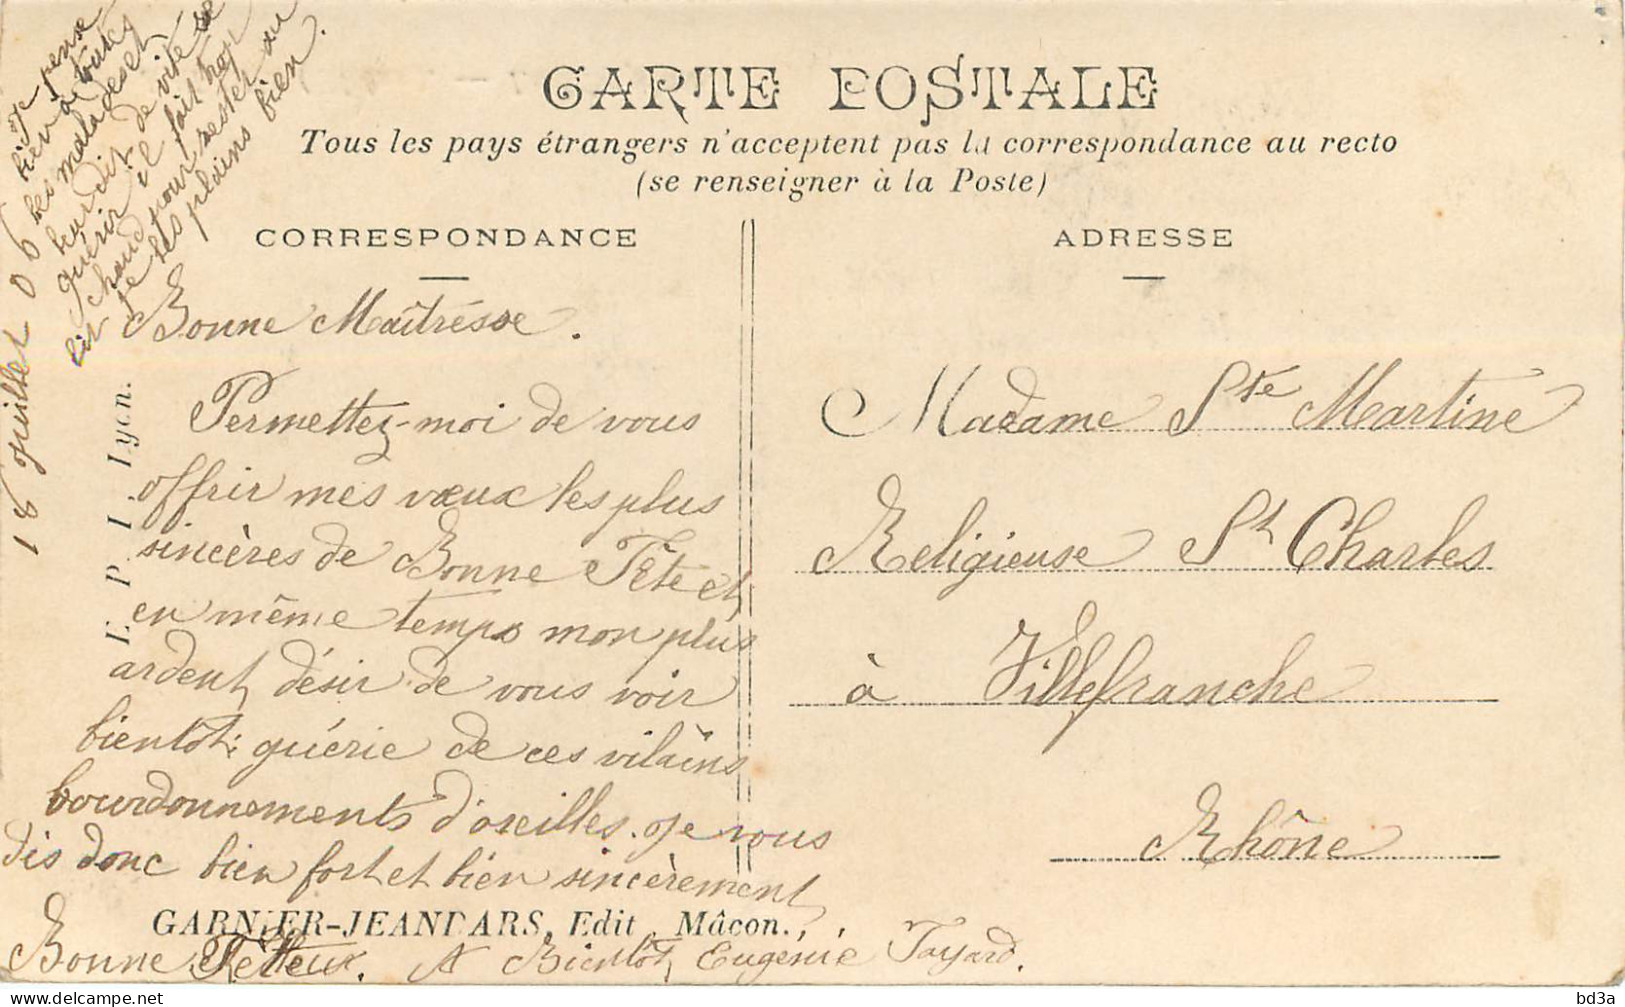 CARTE POSTALE
Tous les pays étrangers n'acceptent pas la correspondance au recto
(se renseigner à la Poste)
CORRESPONDANCE
ADRESSE
18 Juillet 06
Bonne Maîtresse.
Permettez-moi de vous
offrir mes vœux les plus
sincères de Bonne Fête et
en même temps mon plus
ardent désir de vous voir
bientôt guérie de ces vilains
bourdonnements d'oreilles. Je vous
dis donc bien fort et bien sincèrement
Bonne Fête. A Bientôt, Eugénie Tayard.
Je pense
bien à toutes
les malades et
leur dit de vite se
guérir il fait trop
chaud pour rester au
lit je les plains bien.
Madame Ste Martine
Religieuse St Charles
à Villefranche
Rhône
E. P. I. Lyon.
GARNIER-JEANDARS, Edit., Mâcon.
bd3a